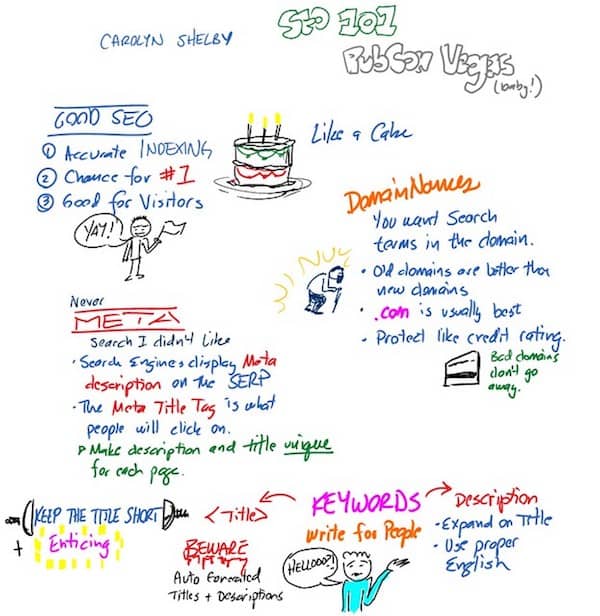 CAROLYN SHELBY
SEO 101
PubCon Vegas
(baby!)
GOOD SEO
① Accurate INDEXING
② Chance for #1
③ Good for Visitors
YAY!
Like a Cake
Domain Names
You want Search
terms in the domain.
• Old domains are better than
new domains
• .com is usually best
• Protect like credit rating.
Bad domains
don't go
away.
Never
META
Search I didn't Like
• Search Engines display Meta
description on the SERP
• The Meta Title Tag is what
people will click on.
Make description and title unique
for each page.
KEEP THE TITLE SHORT
+ Enticing
<Title>
BEWARE
Auto Formatted
Titles + Descriptions
KEYWORDS
write for People
HELLOOO?!
Description
• Expand on Title
• Use proper
English